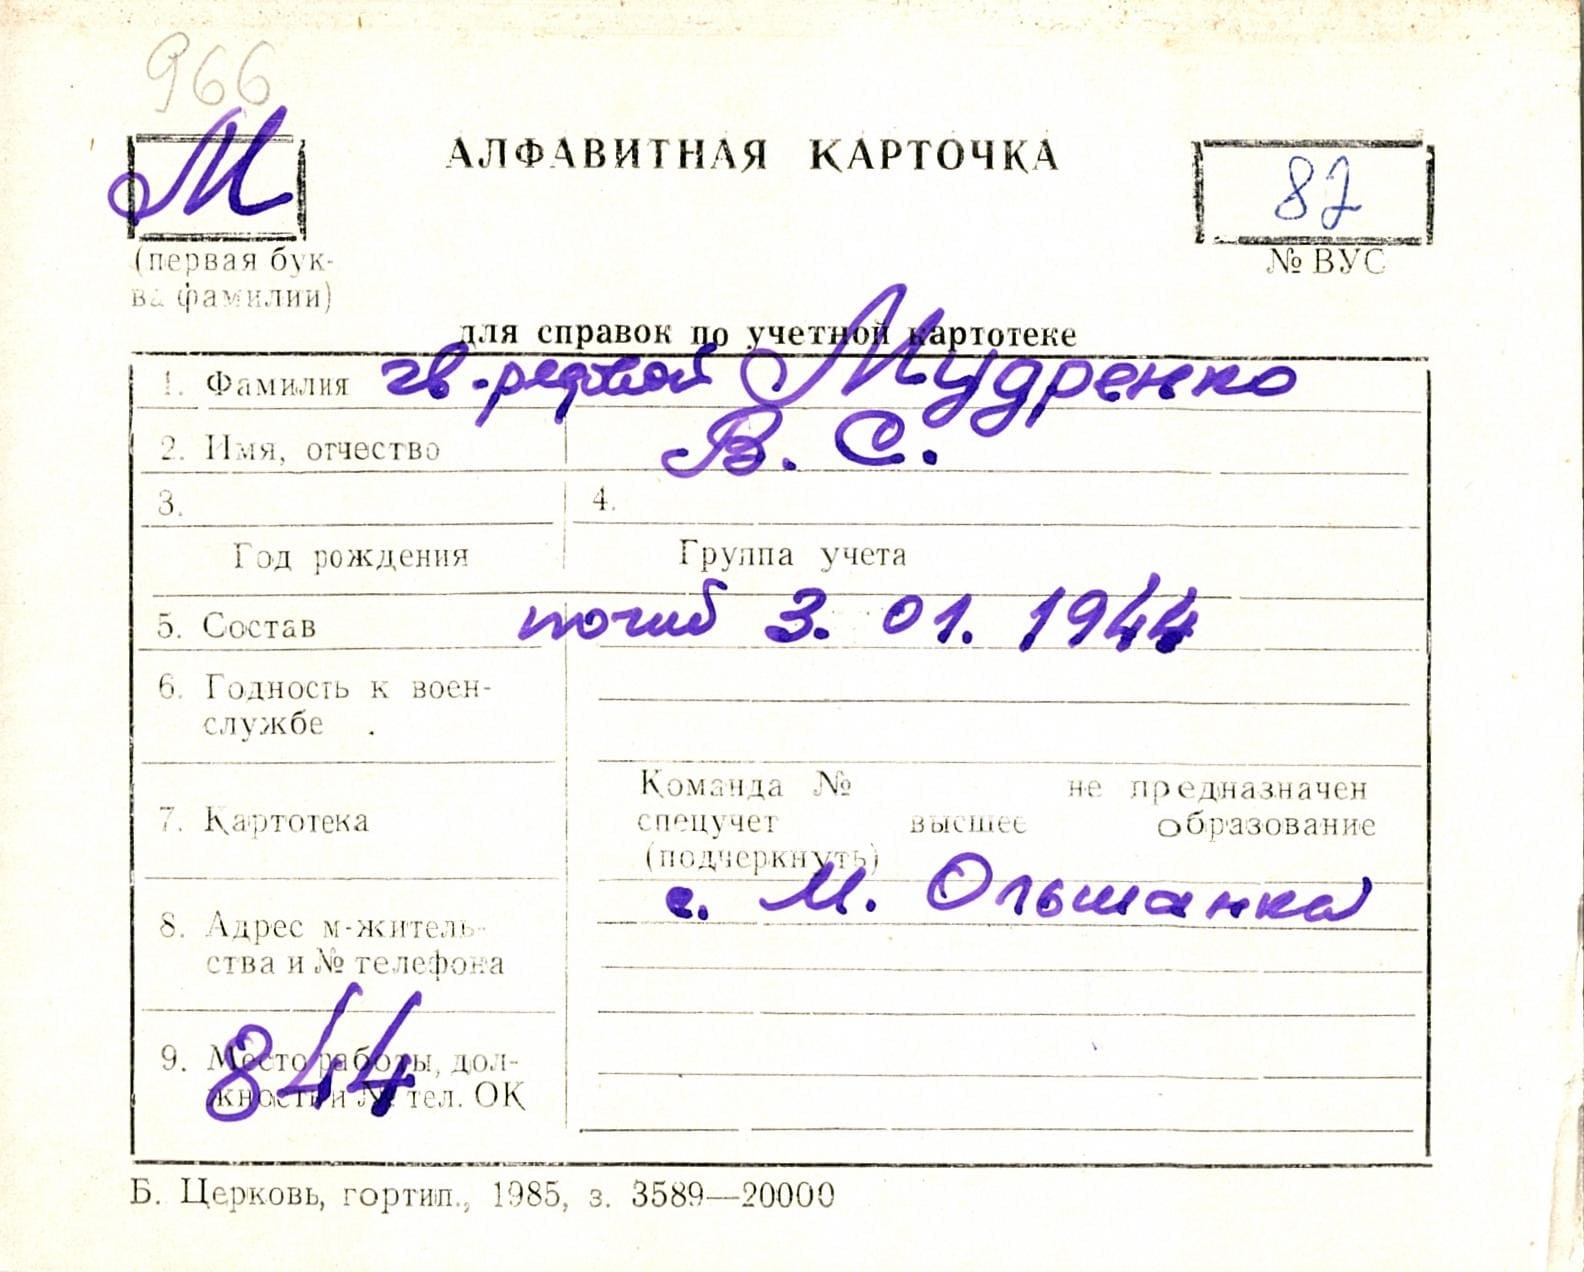 966
М
АЛФАВИТНАЯ КАРТОЧКА
82
(первая бук-
ва фамилии)
№ ВУС
для справок по учетной картотеке
1. Фамилия гв. рядовой Мудренко
2. Имя, отчество В. С.
3. 4.
Год рождения Группа учета
5. Состав погиб 3. 01. 1944
6. Годность к воен-
службе .
7. Картотека
Команда № не предназначен
спецучет высшее образование
(подчеркнуть)
с. М. Ольшанка
8. Адрес м-житель-
ства и № телефона
844
9. Место работы, дол-
жность и № тел. ОК
Б. Церковь, гортип., 1985, з. 3589—20000